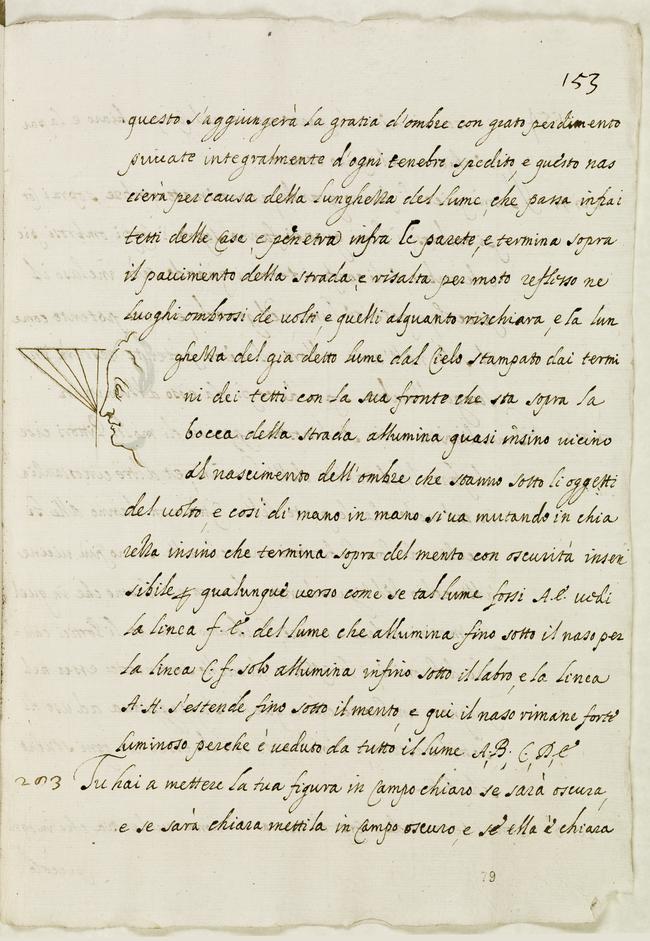 153
questo s'aggiungerà la gratia d'ombre con grato perdimento
private integralmente d'ogni tenebre spedito, e questo nas
cierà per causa della lunghezza del lume, che passa infrai
tetti delle Case, e penetra infra le parete, e termina sopra
il pavimento della strada, e risalta per moto reflesso ne
luoghi ombrosi de volti e quelli alquanto rischiara, e la lun
ghezza del gia detto lume dal Cielo stampato dai termi
ni dei tetti con la sua fronte che sta sopra la
bocca della strada allumina quasi insino vicino
al nascimento dell'ombre che stanno sotto li oggetti
del volto, e così di mano in mano si va mutando in chia
rezza insino che termina sopra del mento con oscurità insen
sibile qualunque verso come se tal lume fossi A.e. vedi
la linea f.e. del lume che allumina fino sotto il naso per
la linea C.f. solo allumina infino sotto il labro, e la linea
A.H. s'estende fino sotto il mento, e qui il naso rimane forte
luminoso perche è veduto da tutto il lume A, B, C, D, e
203 Tu hai a mettere la tua figura in Campo chiaro se sarà oscura,
e se sarà chiara mettila in Campo oscuro, e se ella è chiara
79